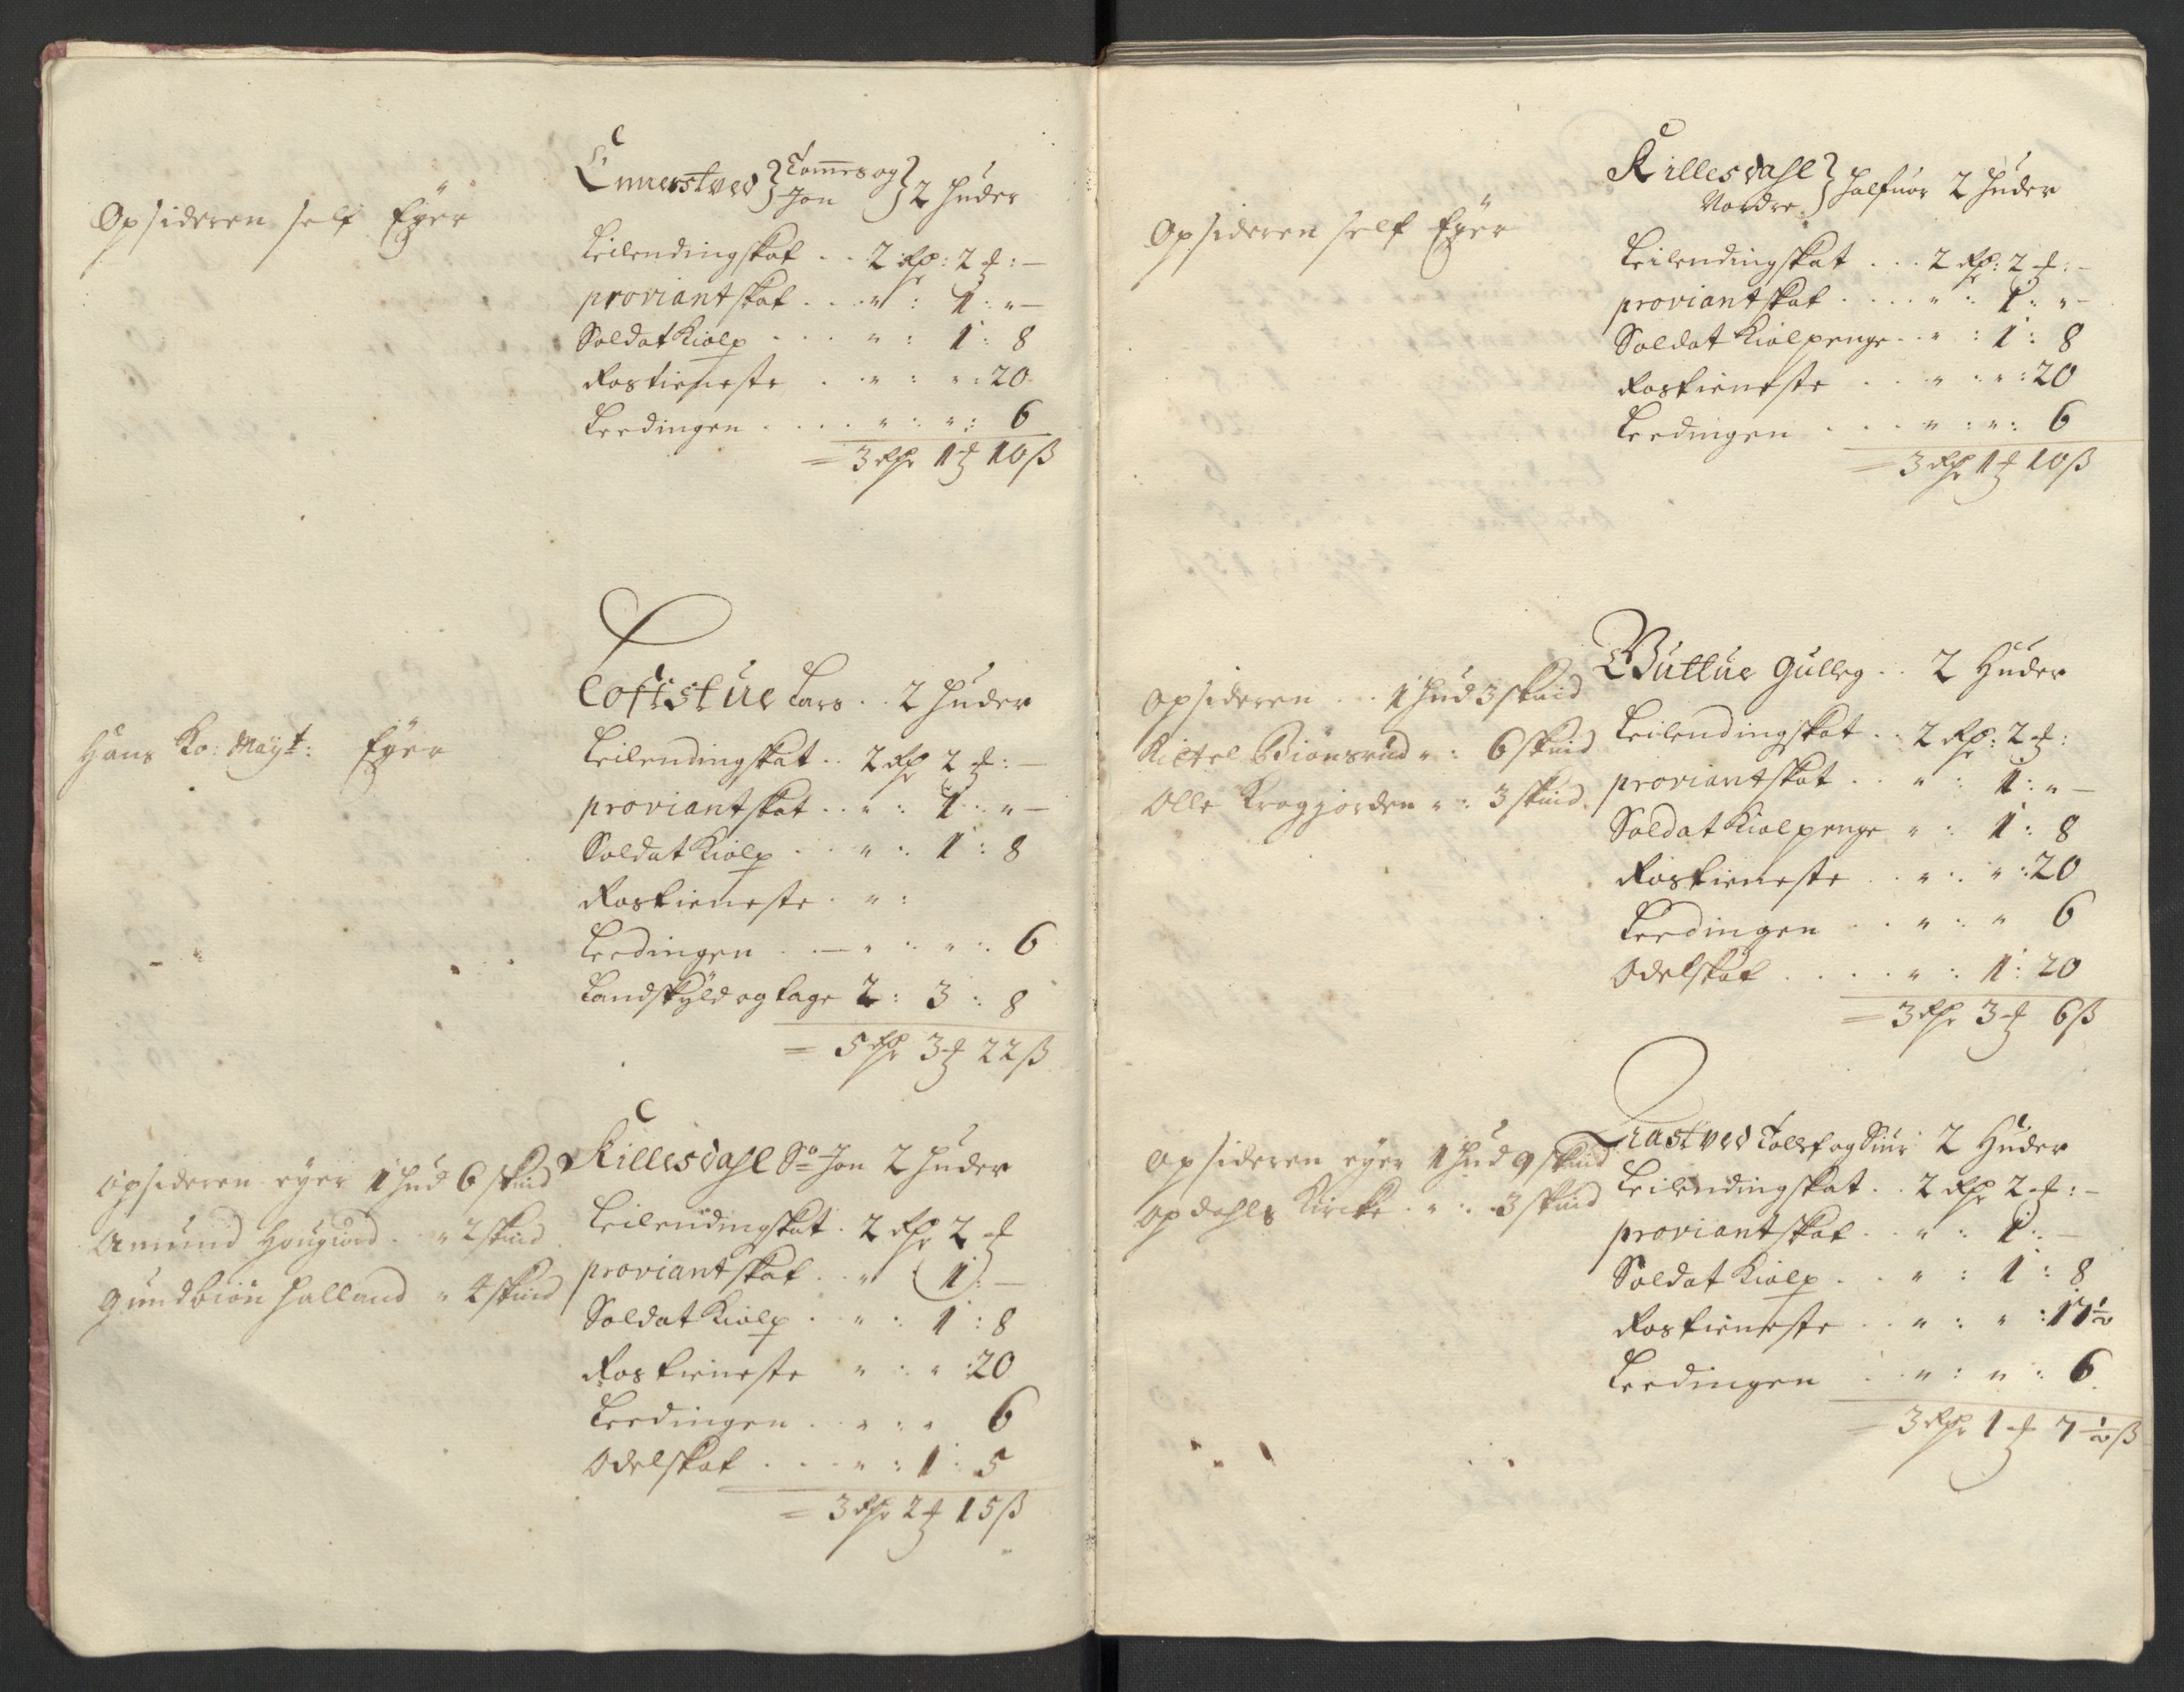 Opsideren self Eÿer
Ennerstved } Tomes og Jon } 2 huder
Leilendingskat . . 2 Rdr: 2 ort: —
proviantskat . . . " : 1 : " —
Soldat Kiolp . . . " : 1 : 8
Rostieneste . " : " : 20
Leedingen . . . . " : " : 6
= 3 Rdr 1 ort 10 ß
Hans Ko: Maÿt: Eÿer
Loftstue Lars . . 2 huder
Leilendingskat . . 2 Rdr 2 ort : —
proviantskat . . " : 1 : " —
Soldat Kiolp . . " : 1 : 8
Rostieneste . " :
Leedingen . — " : " : 6
Landskÿld og tage 2 : 3 : 8
= 5 Rdr 3 ort 22 ß
Opsideren eÿer 1 hud 6 skind
Amund Hougiord . . " 2 skind
Gundbiøn Halland " 4 skind
Killesdahl So Jon 2 huder
Leilendingskat . 2 Rdr 2 ort
proviantskat . . " ( 1 ) : —
Soldat Kiolp . " : 1 : 8
Rostieneste " : " : 20
Leedingen . . " : " 6
Odelskat . . . " : 1 : 5
= 3 Rdr 2 ort 15 ß
Opsideren self Eÿer
Killesdahl Nordre } Halfuor 2 huder
Leilendingskat . . . 2 Rdr: 2 ort: —
proviantskat . . . . " : 1 : " —
Soldat Kiolpenge . . " : 1 : 8
Rostieneste . . " : " : 20
Leedingen . . . " : " : 6
= 3 Rdr 1 ort 10 ß
Opsideren . . 1 hud 3 skind
Kittel Biønsrud " : 6 skind
Olle Kragjorden " : 3 skind
Buttue Gulleg . . 2 Huder
Leilendingskat . . 2 Rdr: 2 ort :
proviantskat . . " : 1 : " —
Soldat Kiolpenge " : 1 : 8
Rostieneste . . " : " : 20
Leedingen . . " : " 6
Odelskat . . . . " : 1 : 20
= 3 Rdr 3 ort 6 ß
Opsideren eÿer 1 hud 9 skind
Opdahls Kircke . " : 3 skind
Trastved Tollef og Siur 2 Huder
Leilendingskat . . 2 Rdr 2 ort : —
proviantskat . . " : 1 : —
Soldat Kiolp . . " : 1 : 8
Rostieneste . . " : " : 17½
Leedingen . . " : " : 6
= 3 Rdr 1 ort 7½ ß